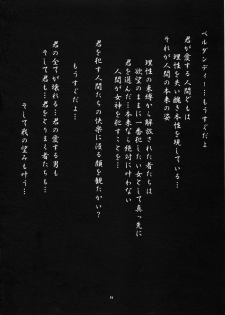 ベルダンディー…もうすぐだよ
君が愛する人間どもは
理性を失い醜き本性を現している…
それが人間の本来の姿
理性の束縛から解放された者たちは
欲望のままに一番犯したい女として真っ先に
君を選んだ…本来なら絶対に叶わない
人間が女神を犯すことが
君を犯す人間たちの快楽に浸る顔を観たかい?
もうすぐだよ…
君の全てが壊れる…君の愛する男も
そして君も…君をとりまく者たちも…
そして我の望みも叶う…